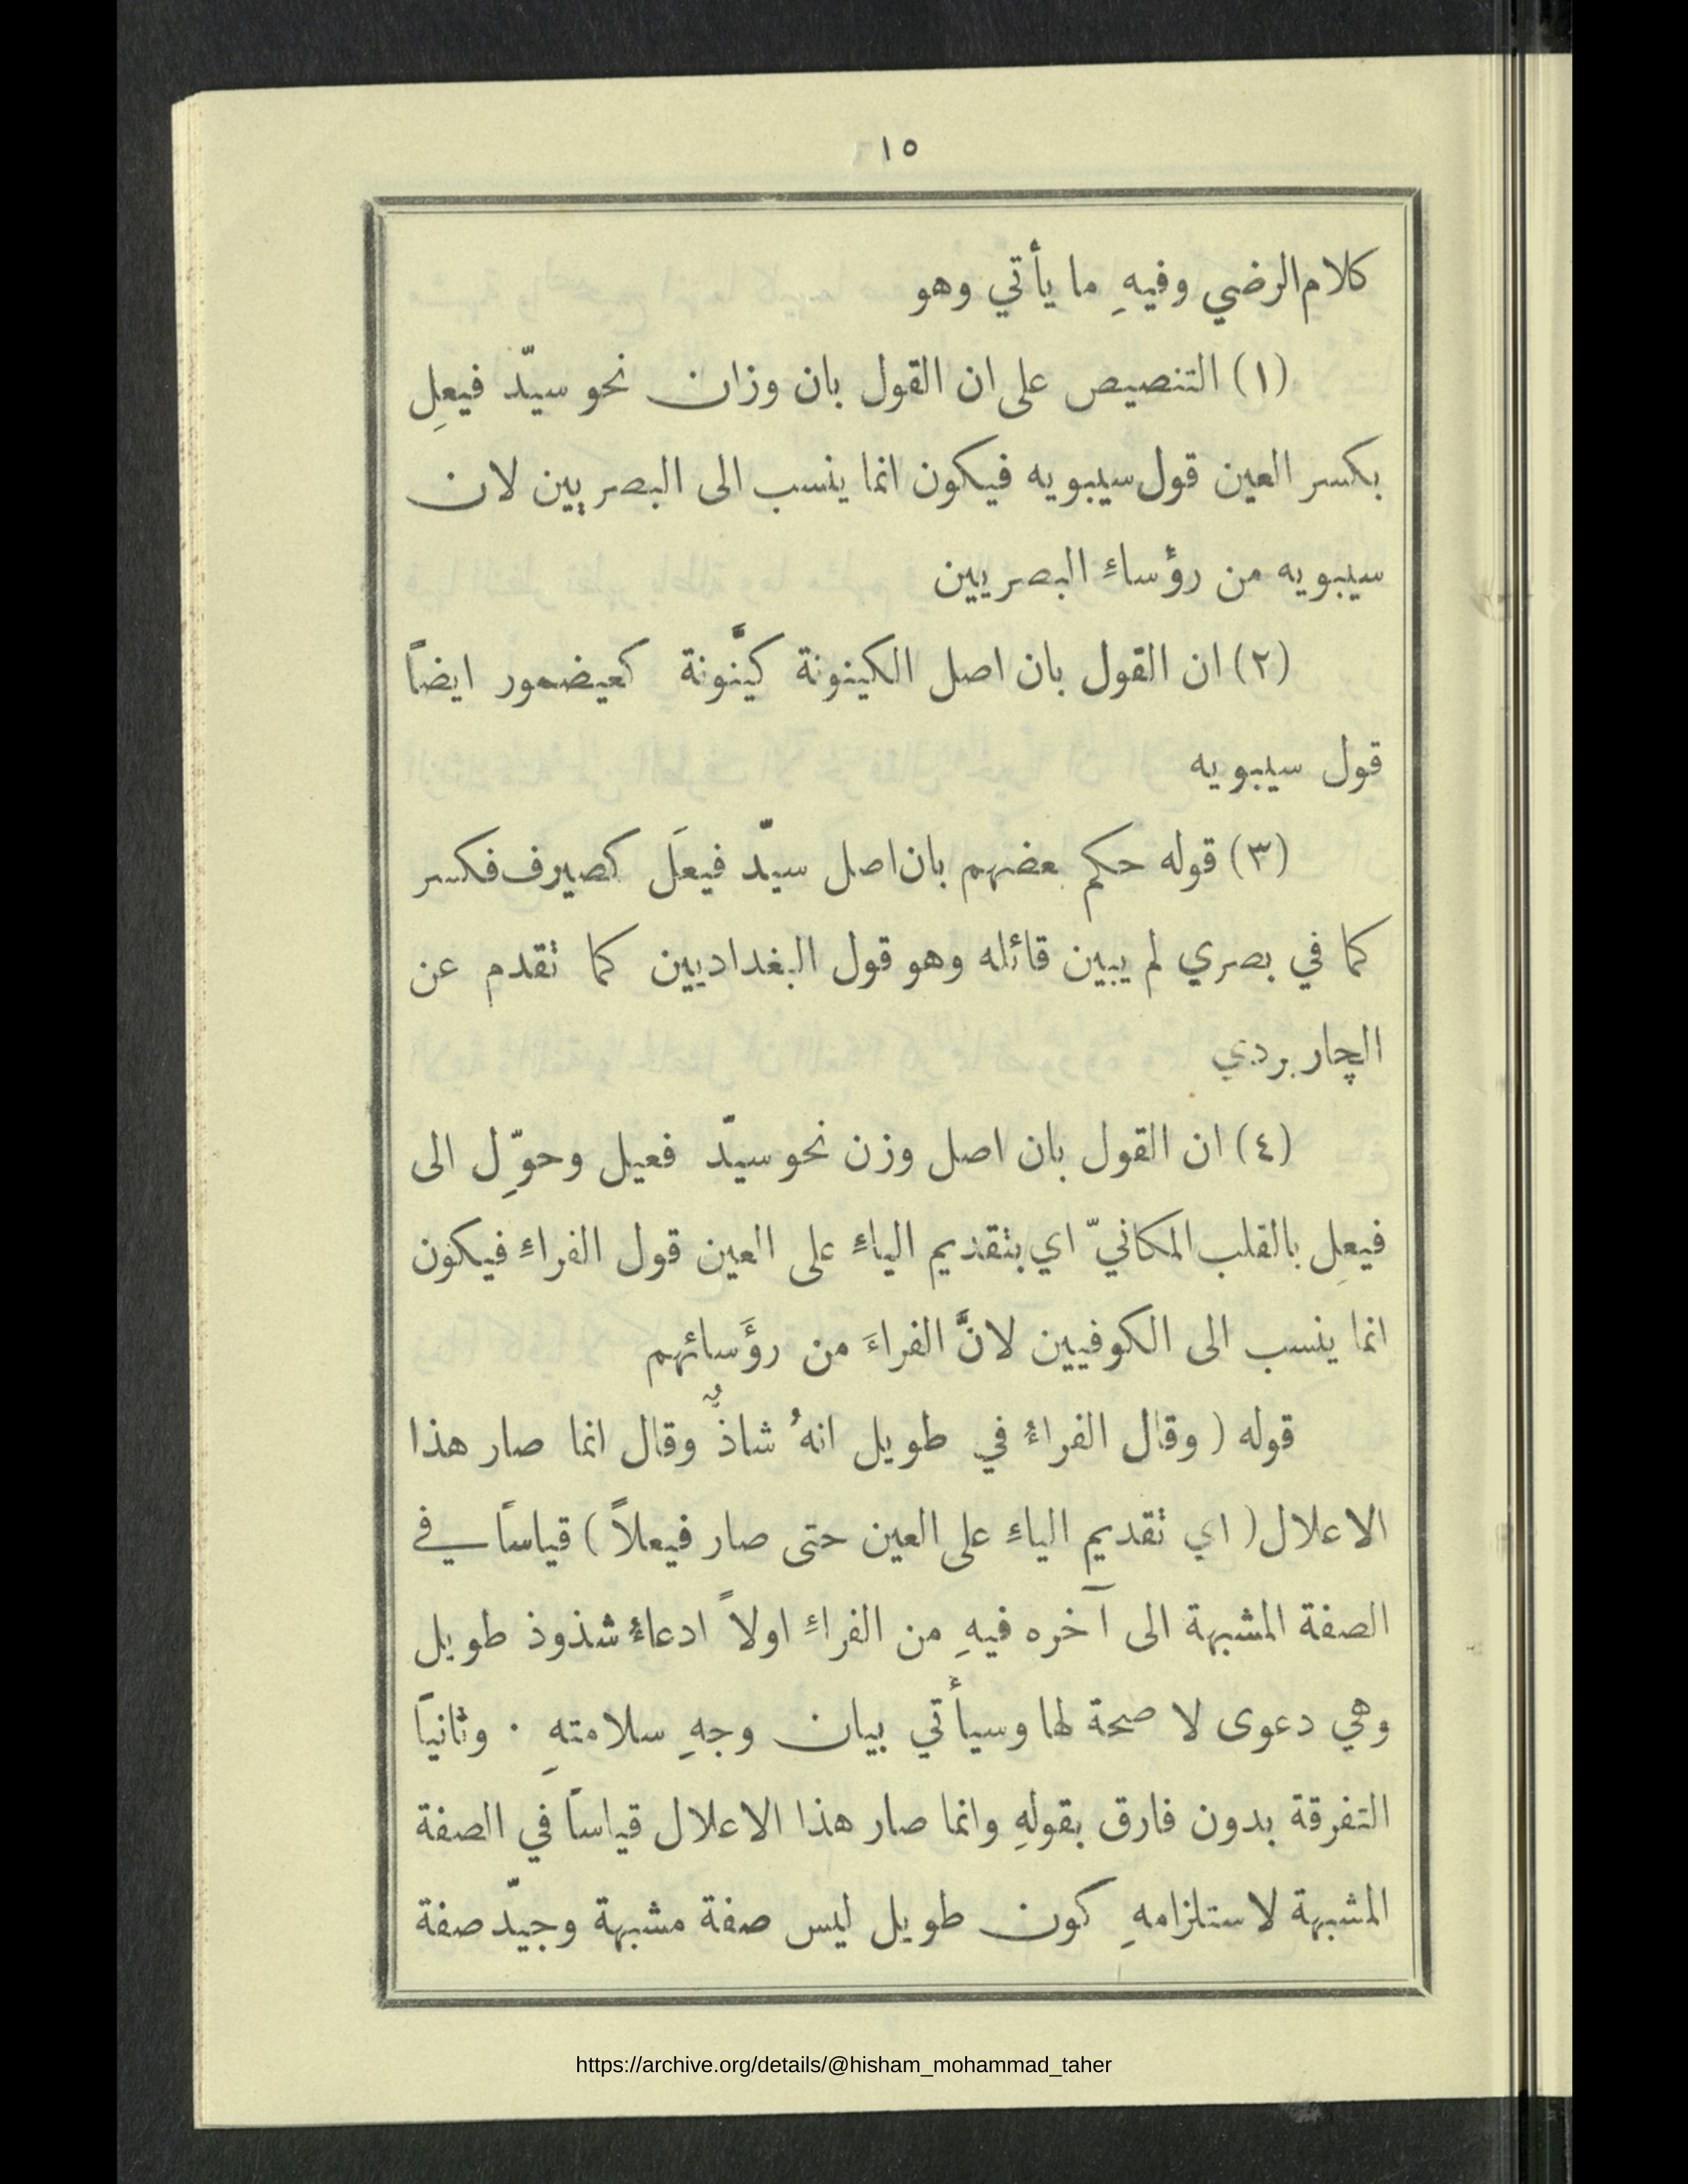 ١٥
كلام الرضي وفيهِ ما يأتي وهو
(١) التنصيص على ان القول بان وزان نحو سيّد فيعِل
بكسر العين قول سيبويه فيكون انما ينسب الى البصريين لان
سيبويه من رؤساءِ البصريين
(٢) ان القول بان اصل الكينونة كيَّنونة كعيضمور ايضاً
قول سيبويه
(٣) قوله حكم بعضهم بان اصل سيّد فيعَل كصيرف فكسر
كما في بصري لم يبين قائله وهو قول البغداديين كما تقدم عن
الچاربردي
(٤) ان القول بان اصل وزن نحو سيّد فعيل وحوِّل الى
فيعِل بالقلب المكانيّ اي بتقديم الياءِ على العين قول الفراءِ فيكون
انما ينسب الى الكوفيين لانَّ الفراءَ من رؤَسائهم
قوله ( وقال الفراءُ في طويل انهُ شاذٌّ وقال انما صار هذا
الاعلال ( اي تقديم الياءِ على العين حتى صار فيعلاً ) قياساً في
الصفة المشبهة الى آخره فيهِ من الفراءِ اولاً ادعاءُ شذوذ طويل
وهي دعوى لا صحة لها وسيأتي بيان وجهِ سلامتهِ · وثانياً
التفرقة بدون فارق بقولهِ وانما صار هذا الاعلال قياساً في الصفة
المشبهة لاستلزامهِ كون طويل ليس صفة مشبهة وجيّد صفة
https://archive.org/details/@hisham_mohammad_taher